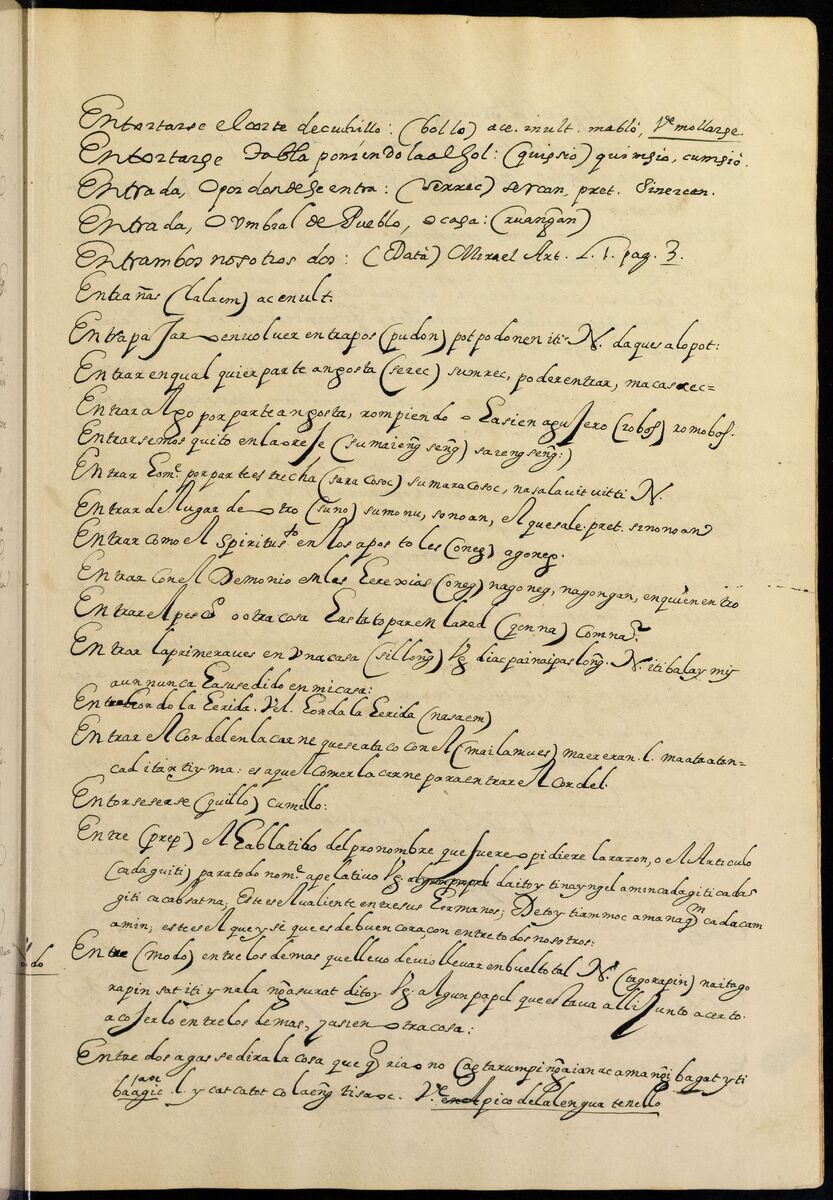 Entortarse el corte de cuchillo: (bollo) ace. inult. mabló, Vᵉ mollarse
Entortarse tabla poniendola al sol: (quissió) quimsio, cumsió.
Entrada, o por donde se entra: (serrec) sercan, pret. sinercan.
Entrada, o umbral de Pueblo, o casa: (ruangan)
Entrambos nosotros dos: (Datà) Mirael Art. L. 1. pag. 3.
Entrañas (lalaem) ac en ult.
Entrapajar o envolver en trapos (pudon) potpodonen iti N. daques a lopot:
Entrar en qualquier parte angosta (serec) sumrec, poder entrar, macasrec=
Entrar algo por parte angosta, rompiendo o hasiend agujero (robos) romobos.
Entrarse mosquito en la oreje (sumaieng seng) sarengseng:)
Entrar home por parte estrecha (saracosoc) sumaracosoc, nasalavit vitti N.
Entrar de lugar de otro (suno) sumonu, sonoan, el que sale. pret. sinonoan
Entrar como el Spiritus sto en los apostoles (oneg) agoneg.
Entrar con el Demonio en les herexias (oneg) nagoneg, nagongan, en quien entró
Entrar el pesco o otra cosa hasta topar en la red (genna) comna.
Entrar la primera ves en una casa (sillong) Vg. diac painaipaslong. N. iti balay mi
aun nunca ha susedido en mi casa:
Entrehondo la herida. Vel. honda la herida (nasaem)
Entrar el cordel en la carne que se ata co con el (mailamues) maereran. l. maataatan=
cad itan tiyma: es aquel comer la carne para entrar el cordel.
Entorseserse (quillo) cumillo:
Entre (prep) el hablatibo del pronombre que fuere o pidiere la razon, o el Articulo
(cadaguiti) para todo nome apelativo Vg. daitoy tinayngel amin cadagiti cadas
giti cacabsatna; Este es el valiente entre sus hermanos; Detoy tiammoc a managm cadacam
amin; este es el que yo sé que es de buen coraçon entre todos nosotros:
Entre (modo) entre los demas que llevo devio llevar enbuelto tal N. (tagorapin) naitago
rapin sat iti y nala nga surat ditoy Vg. algun papel que estava alli junto acerto
a cojerlo entre los demas, y asien otra cosa:
Entre dos agas se dira la cosa que q ria o no (agtarumpingaian ac amangi bagat y ti
baagic. l. y catcatot co laeng ti saoc. Vᵉ en el pico de la lengua tenello